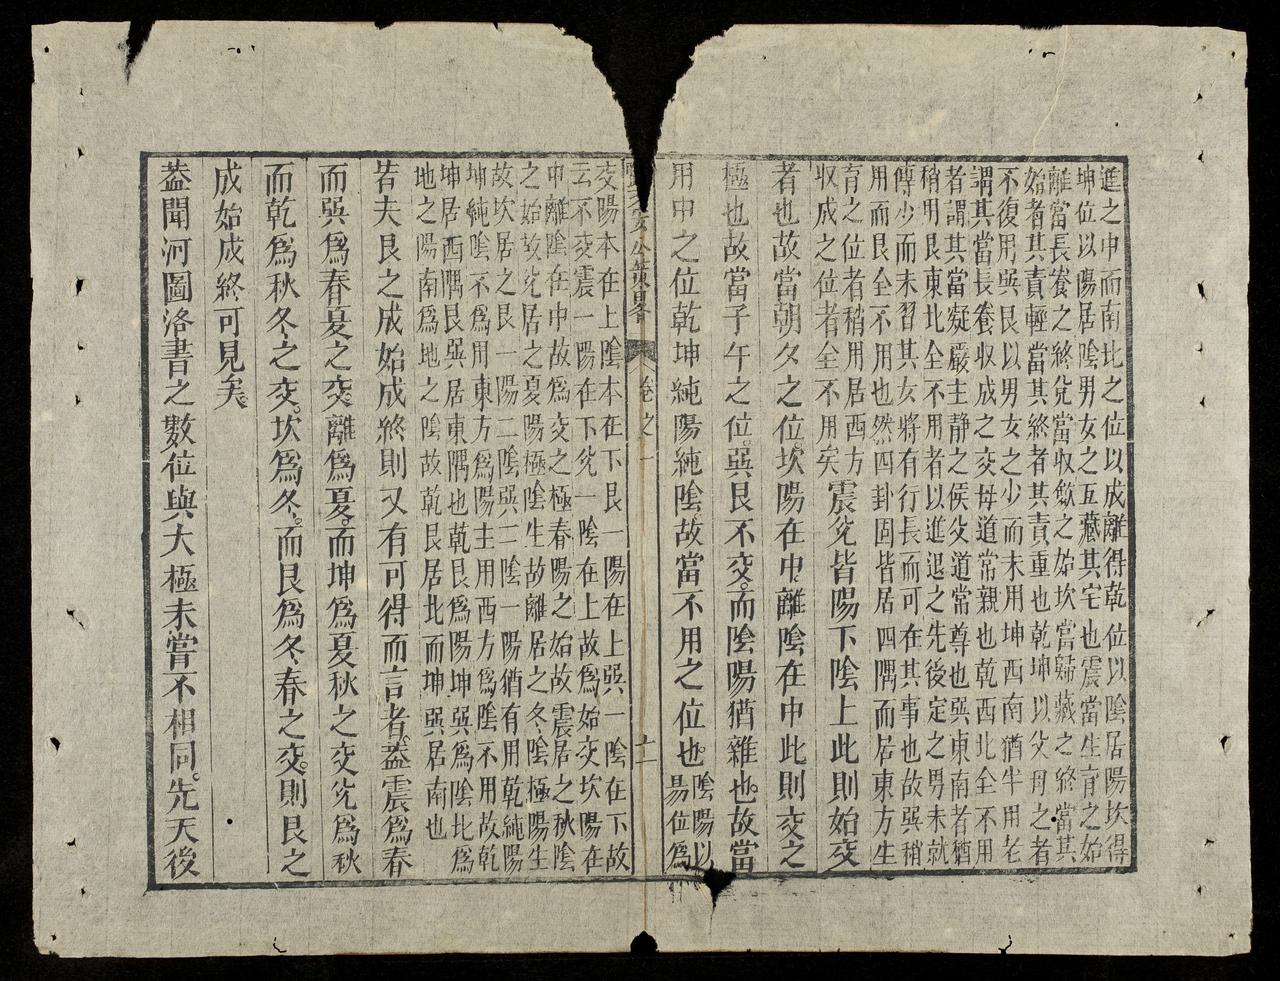 進之中而南北之位以成離得乾位以陰居陽坎得
坤位以陽居陰男女之五藏其宅也震當生育之始
離當長養之終兌當收斂之始坎當歸藏之終當其
始者其責輕當其終者其責重也乾坤以父母之者
不復用巽艮以男女之少而未用坤西南猶半用老
謂其當長養收成之交母道常親也乾西北全不用
者謂其當凝嚴主静之候父道常尊也巽東南者猶
稍用艮東北全不用者以進退之先後定之男未就
傅少而未習其女將有行長而可在其事也故巽稍
用而艮全不用也然四卦固皆居四隅而居東方生
育之位者稍用居西方
收成之位者全不用矣
震兌皆陽下陰上此則始交
者也故當朝夕之位。坎陽在中。離陰在中此則交之
極也故當子午之位。巽艮不交。而陰陽猶雜也。故當
用中之位乾坤純陽純陰故當不用之位也。
陰陽以
易位為
公策畧 卷之一 十二
交陽本在上陰本在下艮一陽在上巽一陰在下故
云不交震一陽在下兌一陰在上故為始交坎陽在
中離陰在中故為交之極春陽之始故震居之秋陰
之始故兌居之夏陽極陰生故離居之冬陰極陽生
故坎居之艮一陽二陰巽二陰一陽猶有用乾純陽
坤純陰不為用東方為陽主用西方為陰不用故乾
坤居西隅艮巽居東隅也乾艮為陽坤巽為陰北為
地之陽南為地之陰故乾艮居北而坤巽居南也
若夫艮之成始成終則又有可得而言者。蓋震為春
而巽為春夏之交。離為夏。而坤為夏秋之交兌為秋
而乾為秋冬之交。坎為冬。而艮為冬春之交。則艮之
成始成終可見矣。
蓋聞河圖洛書之數位與大極未嘗不相同。先天後